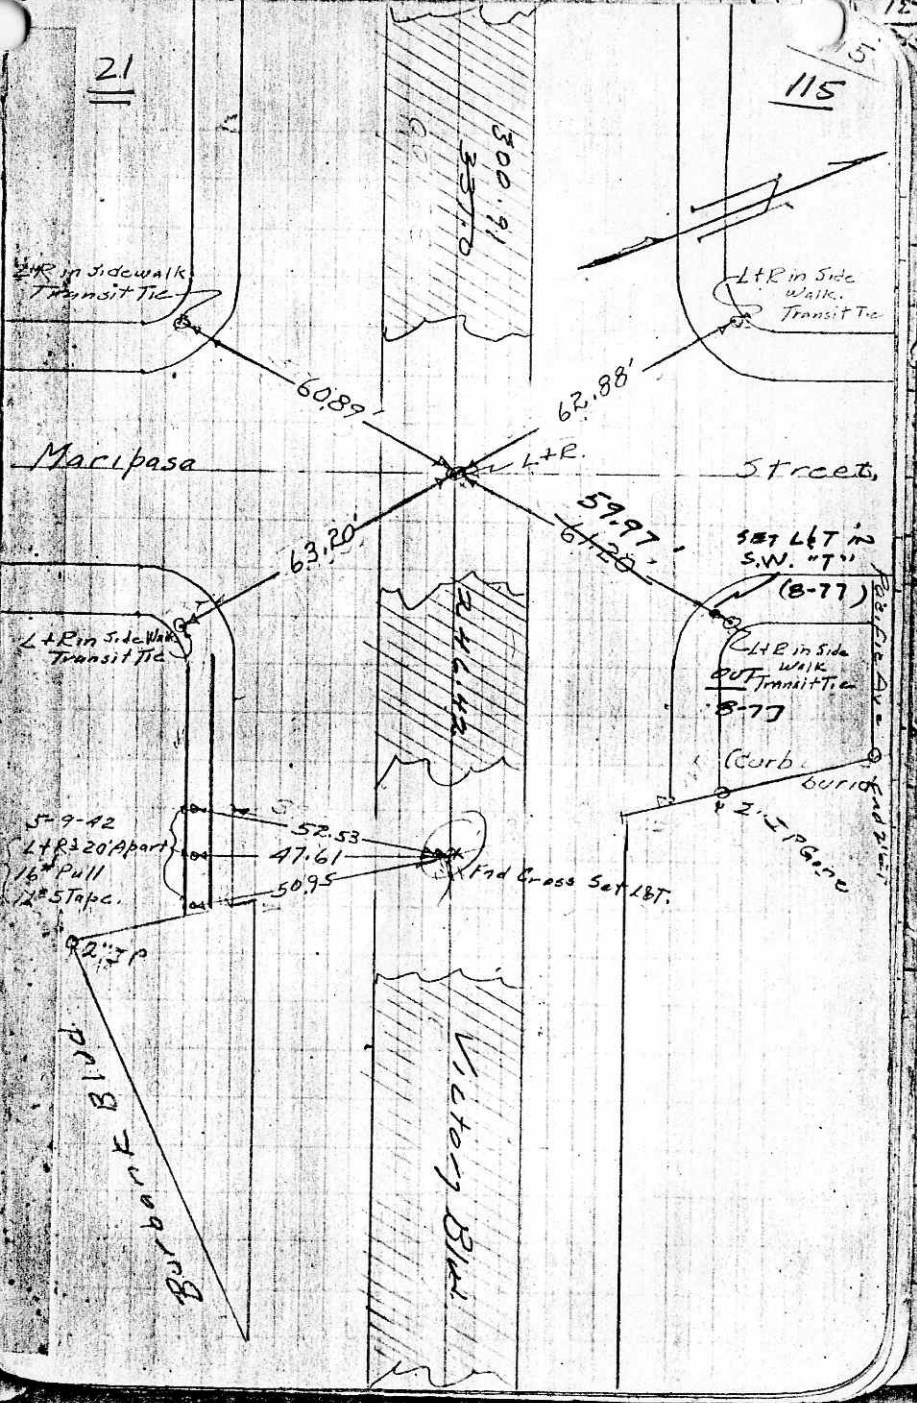 21
115
300.91
331.0
L+R in Sidewalk
Transit Tie
L+R in Side
Walk.
Transit Tie
60.89'
62.88'
Maripasa
L+R.
Street,
63.20'
59.97'
61.20'
SET L&T IN
S.W. "T"
(8-77)
L+R in Side Walk
Transit Tie
246.42
L+R in Side
Walk
OUT Transit Tie
8-77
(Curb
buried
2" I P Gone
5-9-42
L+R's 20' Apart
16# Pull
12# S Tape.
52.53
47.61
50.95
Fnd Cross Set L&T.
2" IP
Burbank Blvd
Victory Blvd